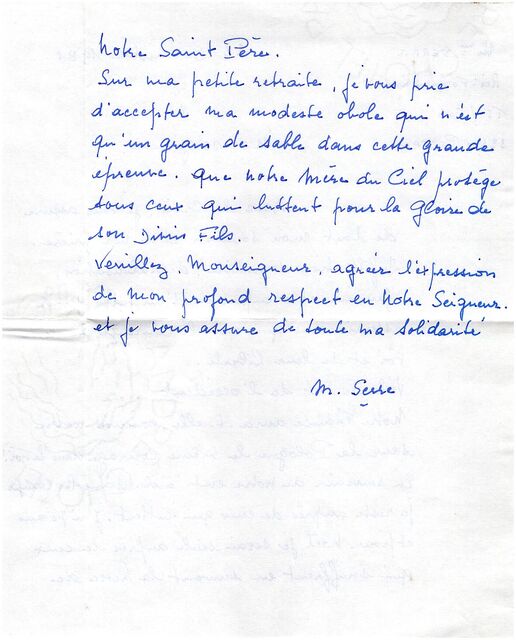 Notre Saint Père.
Sur ma petite retraite, je vous prie
d'accepter ma modeste obole qui n'est
qu'un grain de sable dans cette grande
épreuve. Que notre Mère du Ciel protège
tous ceux qui luttent pour la Gloire de
son Divin Fils.
Veuillez, Monseigneur, agréer l'expression
de mon profond respect en Notre Seigneur.
et je vous assure de toute ma solidarité
M. Serre